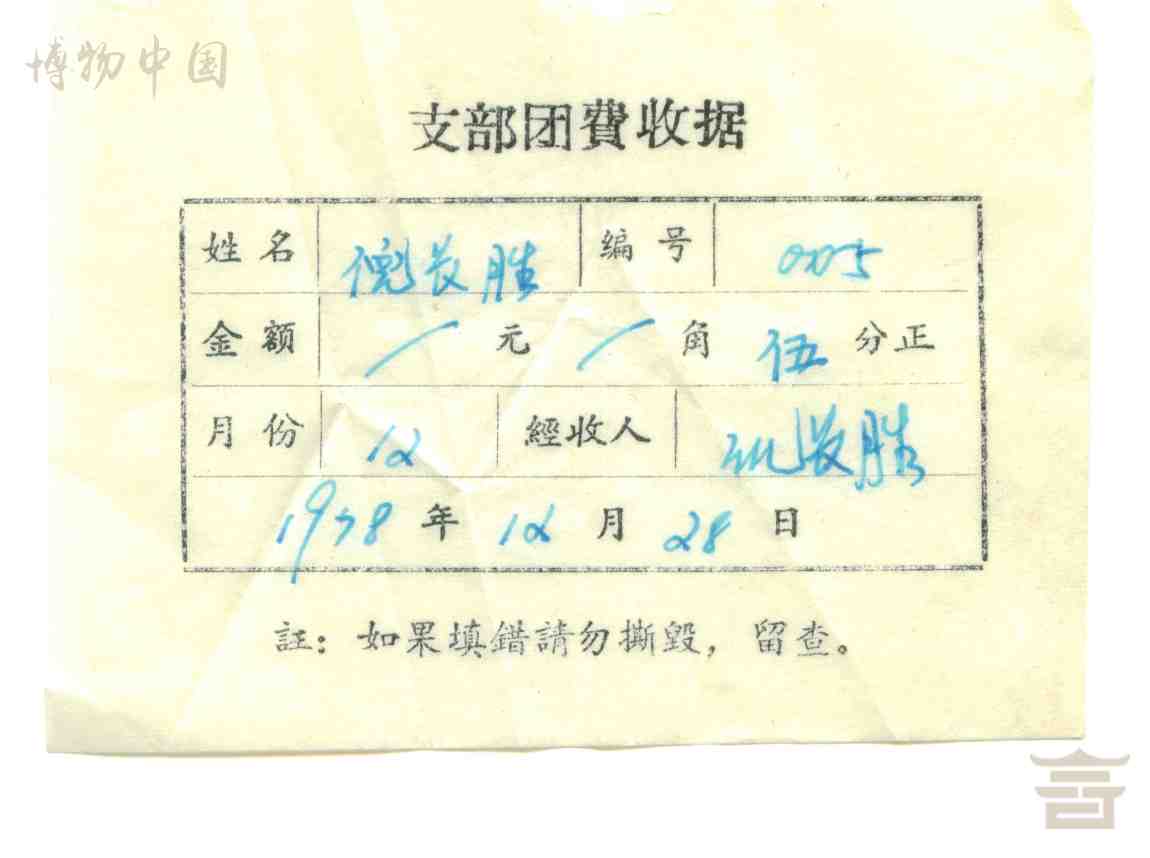 博物中国
支部团費收据
姓名 长胜 编号 005
金额 / 元 / 角 伍 分正
月份 12 經收人 长胜
1978 年 12 月 28 日
註：如果填錯請勿撕毀，留查。